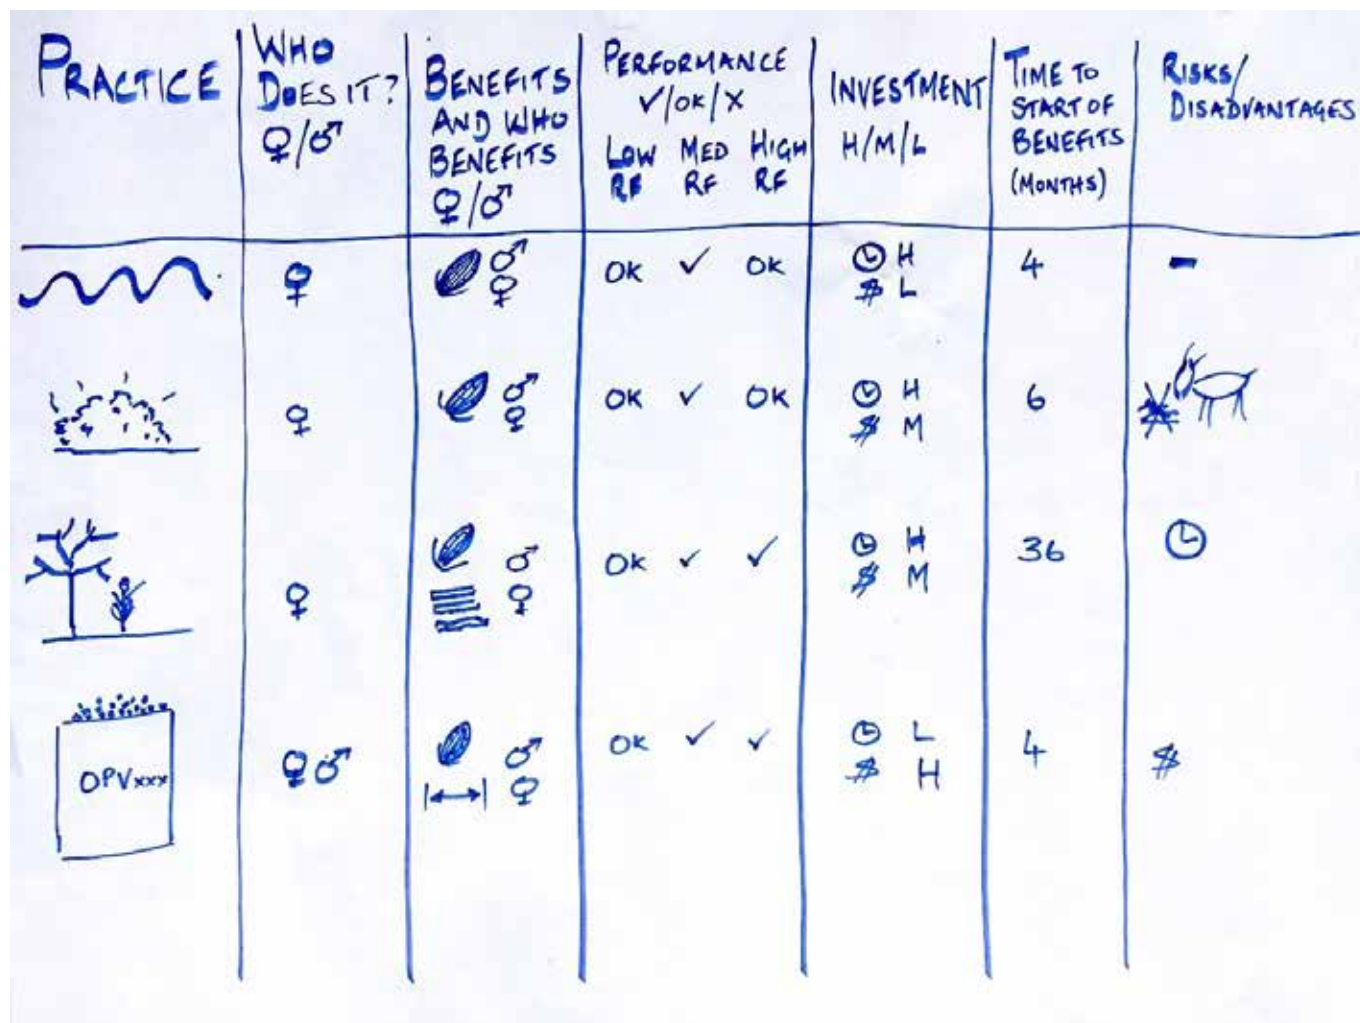 PRACTICE
WHO
DOES IT?
♀/♂
BENEFITS
AND WHO
BENEFITS
♀/♂
PERFORMANCE
✓/OK/X
LOW MED HIGH
RF RF RF
INVESTMENT
H/M/L
TIME TO
START OF
BENEFITS
(MONTHS)
RISKS/
DISADVANTAGES
♀ ♂ OK ✓ OK H 4 -
♀ $ L
♀ ♂ OK ✓ OK H 6
♀ $ M
♀ ♂ OK ✓ ✓ H 36
♀ $ M
OPVxxx
♀♂ ♂ OK ✓ ✓ L 4 $
♀ $ H